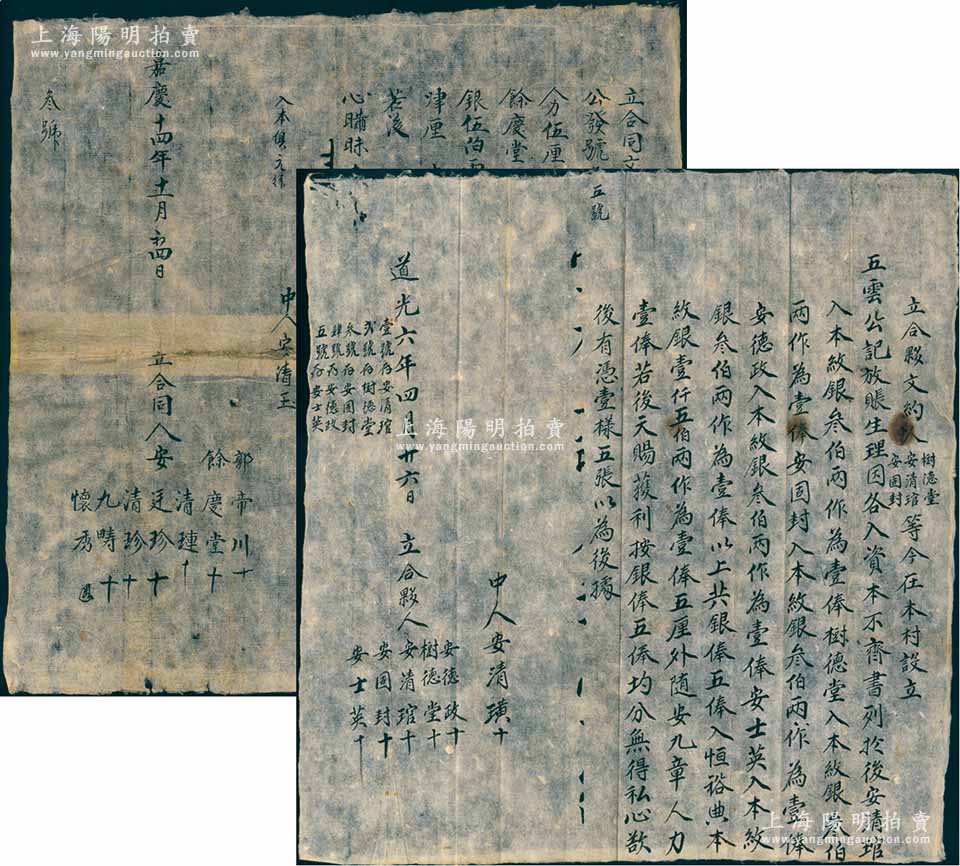 上海陽明拍賣
www.yangmingauction.com
立合同文
公發號
分伍厘
餘慶堂
銀伍伯兩
肆厘
若後
心瞞昧
入本俱文種
中人安清玉
嘉慶十四年十一月初四日
立合同人安
郭帝川十
餘慶堂十
清璉十
廷珍十
清珍十
九疇十
懷秀
叁號
五號
立合夥文約人
樹德堂
安清琯
安固封
等今在本村設立
五雲公記放賬生理因各入資本不齊書列於後安清琯
入本紋銀叁伯兩作為壹俸樹德堂入本紋銀叁伯
兩作為壹俸安固封入本紋銀叁伯兩作為壹俸
安德政入本紋銀叁伯兩作為壹俸安士英入本紋
銀叁伯兩作為壹俸以上共銀俸五俸入恒裕典本
紋銀壹仟五伯兩作為壹俸五厘外隨安九章人力
壹俸若後天賜獲利按銀俸五俸均分無得私心欺
後有憑壹樣五張以為後據
中人安清璜十
道光六年四月廿六日
立合夥人
安德政十
樹德堂十
安清琯十
安固封十
安士英十
壹號存安清琯
貳號存樹德堂
叁號存安固封
肆號存安德政
五號存安士英
上海陽明拍賣
www.yangmingauction.com
上海陽明拍賣
www.yangmingauction.com